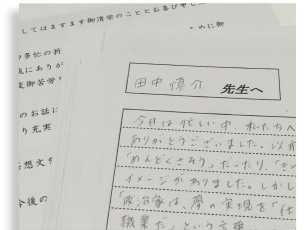 してはますます御清栄のこととお喜び申し上
多忙の折
にありが
御苦労
のお話に
り充実
想文を
今後の
田中慎介 先生へ
今日は忙しい中、私たちへ
ありがとうございました。以前
「めんどくさそう」だったり、「き
イメージがありました。しかし
「政治家は、夢の実現を「仕
職業だ」という言葉